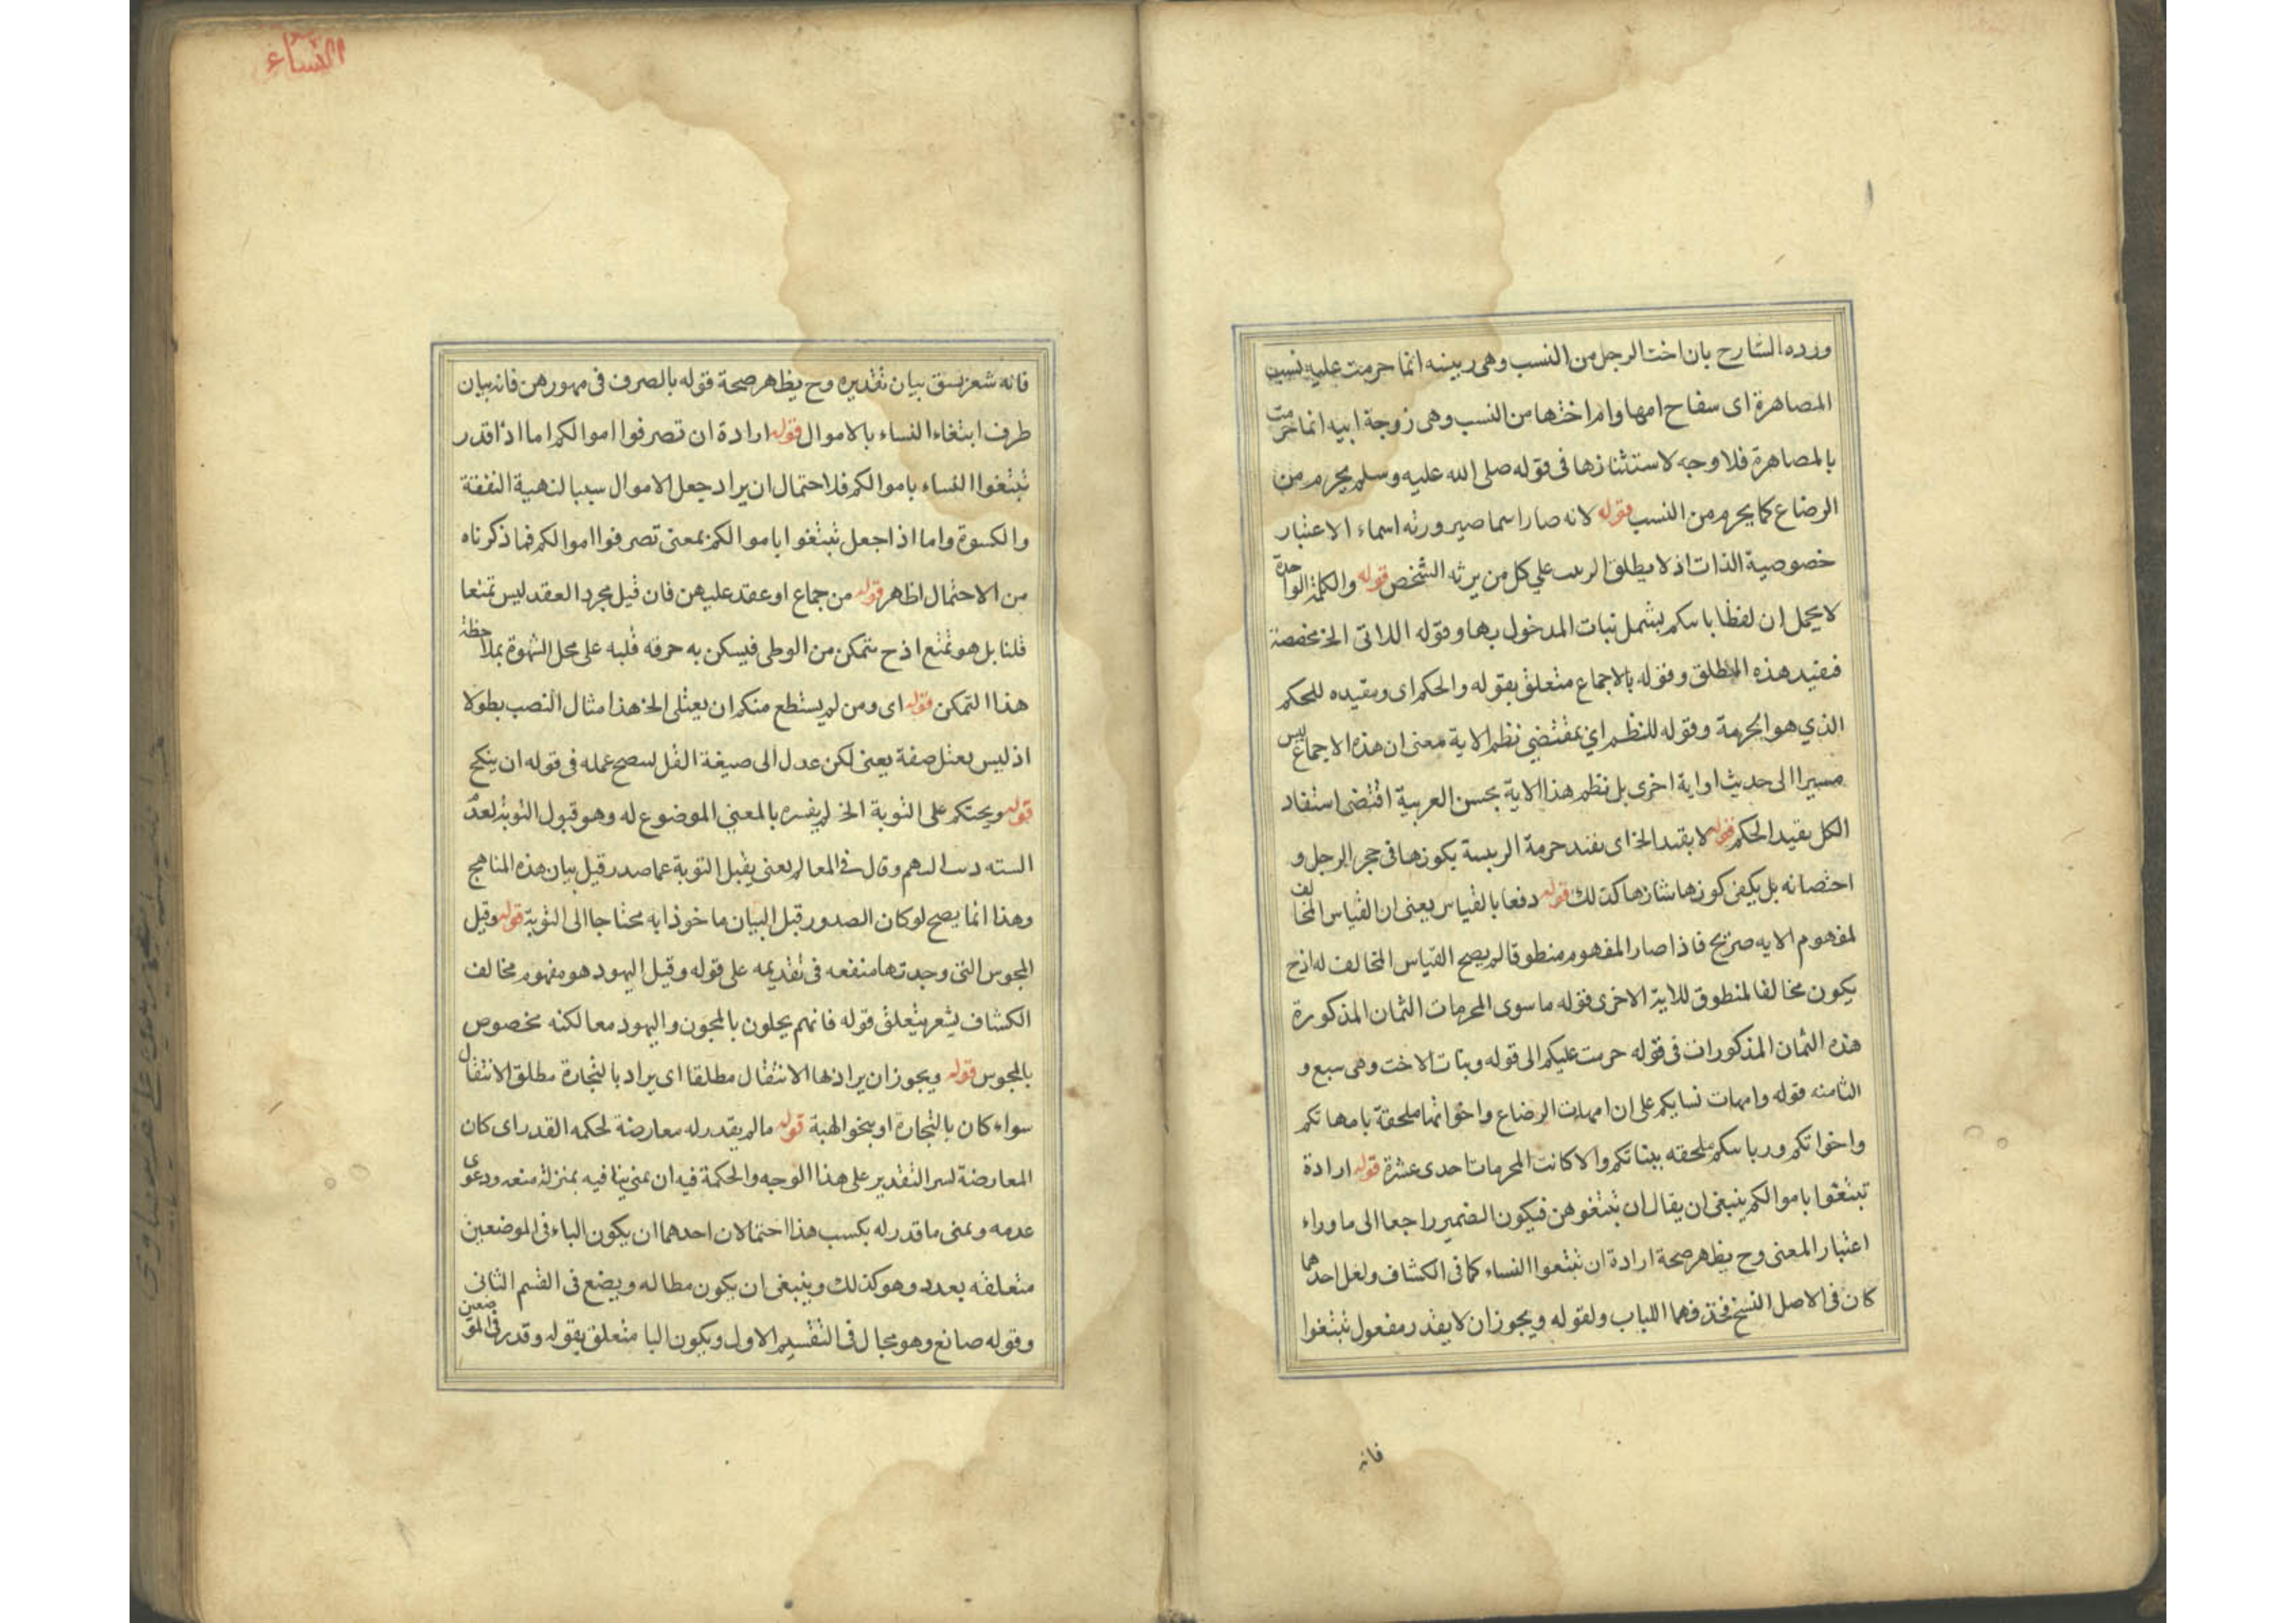 ورده الشارح بان اخت الرجل من النسب وهى ربيبته انما حرمت عليه نسبت
المصاهرة اى سفاح امها وام اختها من النسب وهى زوجة ابيه انما حرمت
بالمصاهرة فلا وجه لاستثنازها فى قوله صلى الله عليه وسلم يحرم من
الرضاع كما يحرم من النسب قوله لانه صار اسما صيرورته اسماء الاعتبار
خصوصية الذات اذ لا يطلق على كل من يرثه الشخص قوله والكلمة الواحدة
لا يحمل ان لفظا باسكم يشمل نبات المدخول بها وقوله اللاتى الخ مخصصة
فقيد هذه المطلق وقوله بالاجماع متعلق بقوله والحكم اى ومقيده للحكم
الذي هو الحرمة وقوله للنظم اي بمقتضي نظم الاية معنى ان هذه الاجماع ليس
مسيرا الى حديث او اية اخرى بل نظم هذا الاية بحسن العربية اقتضى استفاد
الكل بقيد الحكم قوله لا بقيد الخ اى نفند حرمة الربيبة بكونها فى حجر الرجل و
احتصانه بل يكفى كونها شازها كذلك قوله دفعا بالقياس يعنى ان القياس المخالف
لمفهوم الايه صريح فاذا صار المفهوم منطوقا لم يصح القياس المخالف له اذ ح
يكون مخالفا لمنطوق للاية الاخرى قوله ما سوى المحرمات الثمان المذكورة
هذه الثمان المذكورات فى قوله حرمت عليكم الى قوله وبنات الاخت وهى سبع و
الثامنه قوله وامهات نسايكم على ان امهات الرضاع واخواتها ملحقة بامهاتكم
واخواتكم ورباسكم ملحقه ببناتكم والا كانت المحرمات احدى عشرة قوله ارادة
تبتغوا باموالكم ينبغى ان يقال ان تبتغوهن فيكون الضمير راجعا الى ما وراء
اعتبار المعنى وح يظهر صحة ارادة ان تبتغوا النساء كما فى الكشاف ولعل احدهما
كان فى الاصل النسخ فحذفهما اللباب ولقوله ويجوز ان لا يقدر مفعول تبتغوا
فانه
النساء
فانه شعر بسق بيان تقديره وح يظهر صحة قوله بالصرف فى مهورهن فانه بيان
طرف ابتغاء النساء بالاموال قوله ارادة ان تصرفوا اموالكم اما اذا قدر
تبتغوا النساء باموالكم فلاحتمال ان يراد جعل الاموال سببا لنهية النفقة
والكسوة واما اذا جعل تبتغوا باموالكم بمعنى تصرفوا اموالكم فما ذكرناه
من الاحتمال اظهر قوله من جماع او عقد عليهن فان قيل مجرد العقد ليس تمتعا
قلنا بل هو تمتع اذ ح يتمكن من الوطى فيسكن به حرقة قلبه على محل الشهوة بملاحظة
هذا التمكن قوله اى ومن لم يستطع منكم ان يعتلى الخ هذا مثال النصب بطولا
اذ ليس يعتل صفة يعنى لكن عدل الى صيغة الفل لسصح عمله فى قوله ان ينكح
قوله ويحتكم على التوبة الخ لم يفسره بالمعنى الموضوع له وهو قبول التوبة لعدم
السته وقال فى المعالم يعنى يقبل التوبة عما صدر قبل بيان هذه المناهج
وهذا انما يصح لو كان الصدور قبل البيان ماخوذا به محتاجا الى التوبة قوله وقيل
المجوس التى وجدتها منفعه فى تقديمه على قوله وقيل اليهود هو مفهوم مخالف
الكشاف يشعر بتعلق قوله فانهم يحلون بالمجون واليهود معا لكنه مخصوص
بالمجوس قوله ويجوز ان يراد بها الانتقال مطلقا اى يراد بالتجارة مطلق الانتقال
سواء كان بالتجارة او بنحو الهبة قوله ما لم يقدر له معارضة لحكمه القدر اى كان
المعارضة لسر التقدير على هذا الوجه والحكمة فيه ان بمنى ينافيه بمنزلة منعه ودعوى
عدمه وبمنى ما قدر له بكسب هذا احتمالان احدهما ان يكون الباء فى الموضعين
متعلقه بعدد وهو كذلك وينبغى ان يكون مطاله ويضع فى القسم الثانى
وقوله صانع وهو مجال فى التقسيم الاول ويكون البا متعلق بقوله وقدر فى الموضعين